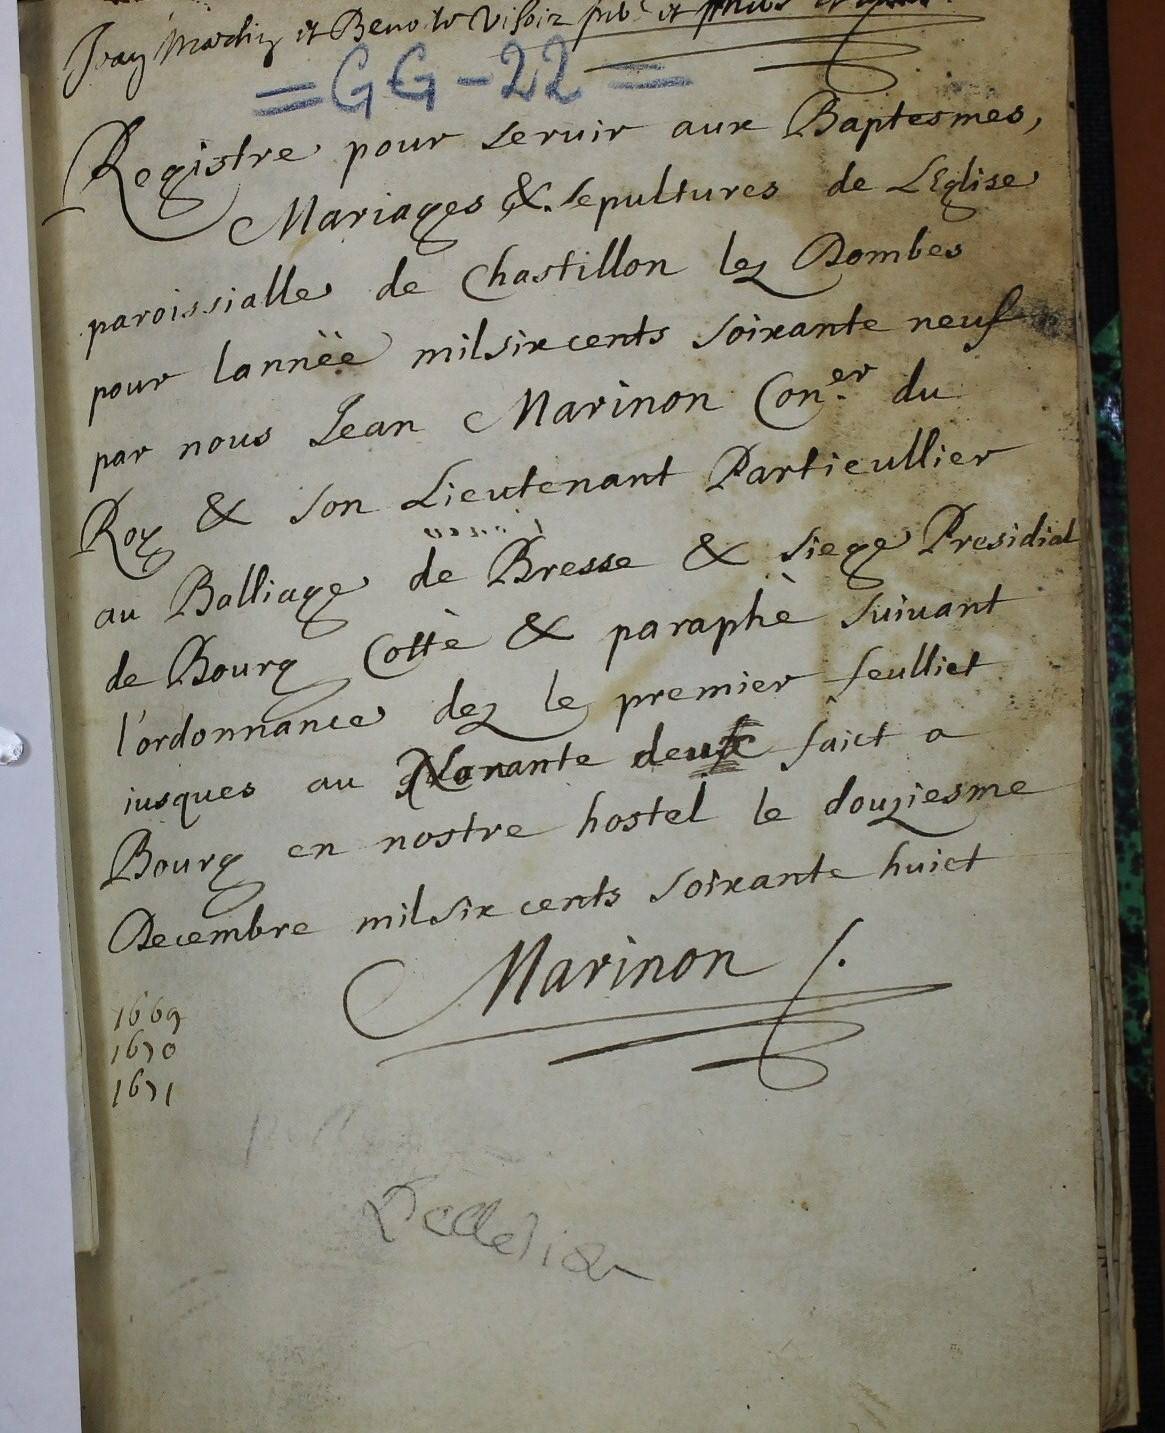 Jean Mardin et Benoite Visoiz et
= GG - 22 =
Registre pour seruir aux Baptesmes,
Mariages &. sepultures de LEglise
paroissialle de Chastillon lez Dombes
pour lannëe milsixcents soixante neuf
par nous Jean Marinon Con.er du
Roy & son Lieutenant Particullier
au Balliage de Bresse & siege Presidial
de Bourg Cottè & paraphè suiuant
l'ordonnance dez le premier feulliet
iusques au Nonante deux faict a
Bourg en nostre hostel le douziesme
Decembre milsix cents soixante huict
Marinon /.
1669
1670
1671